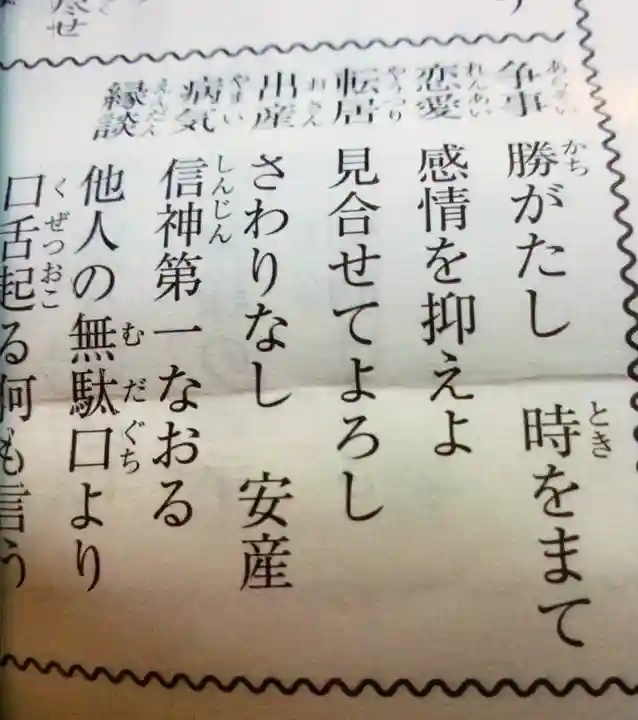 争事 勝がたし 時をまて
恋愛 感情を抑えよ
転居 見合せてよろし
出産 さわりなし 安産
病気 信神第一なおる
縁談 他人の無駄口より
口舌起る何も言う